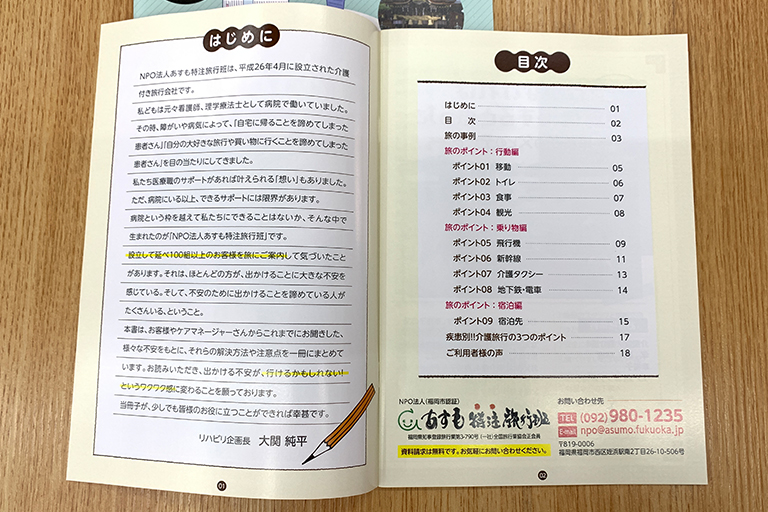 はじめに
NPO法人あすも特注旅行班は、平成26年4月に設立された介護
付き旅行会社です。
私どもは元々看護師、理学療法士として病院で働いていました。
その時、障がいや病気によって、「自宅に帰ることを諦めてしまった
患者さん」「自分の大好きな旅行や買い物に行くことを諦めてしまった
患者さん」を目の当たりにしてきました。
私たち医療職のサポートがあれば叶えられる「想い」もありました。
ただ、病院にいる以上、できるサポートには限界があります。
病院という枠を越えて私たちにできることはないか、そんな中で
生まれたのが「NPO法人あすも特注旅行班」です。
設立して延べ100組以上のお客様を旅にご案内して気づいたこと
があります。それは、ほとんどの方が、出かけることに大きな不安を
感じている。そして、不安のために出かけることを諦めている人が
たくさんいる、ということ。
本書は、お客様やケアマネージャーさんからこれまでにお聞きした、
様々な不安をもとに、それらの解決方法や注意点を一冊にまとめて
います。お読みいただき、出かける不安が、行けるかもしれない!
というワクワク感に変わることを願っております。
当冊子が、少しでも皆様のお役に立つことができれば幸甚です。
リハビリ企画長 大関 純平
01
目次
はじめに 01
目 次 02
旅の事例 03
旅のポイント:行動編
ポイント01 移動 05
ポイント02 トイレ 06
ポイント03 食事 07
ポイント04 観光 08
旅のポイント:乗り物編
ポイント05 飛行機 09
ポイント06 新幹線 11
ポイント07 介護タクシー 13
ポイント08 地下鉄・電車 14
旅のポイント:宿泊編
ポイント09 宿泊先 15
疾患別!!介護旅行の3つのポイント 17
ご利用者様の声 18
NPO法人(福岡市認証)
あすも特注旅行班
福岡県知事登録旅行業第3-790号 (一社)全国旅行業協会正会員
資料請求は無料です。お気軽にお問い合わせください。
お問い合わせ先
TEL (092)980-1235
E-mail npo@asumo.fukuoka.jp
〒819-0006
福岡県福岡市西区姪浜駅南2丁目26-10-506号
02